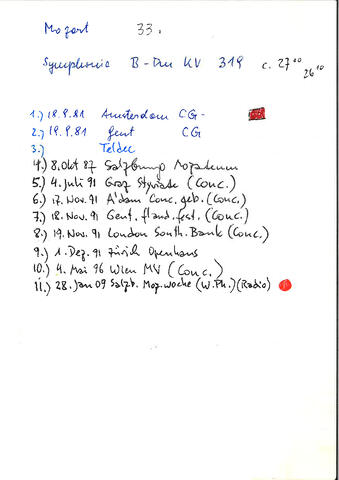 Mozart 33.
Symphonie B-Dur KV 319 c. 27'00 26'10
1.) 18.9.81 Amsterdam CG-
2.) 19.9.81 Gent CG
3.) Teldec
4.) 8. Okt 87 Salzburg Mozarteum
5.) 4. Juli 91 Graz Styriate (Conc.)
6.) 17. Nov 91 A'dam Conc. geb. (Conc.)
7.) 18. Nov. 91 Gent. fland. fest. (Conc.)
8.) 19. Nov. 91 London South. Bank (Conc.)
9.) 1. Dez. 91 Zürich Opernhaus
10.) 4. Mai 96 Wien MV (Conc.)
11.) 28. Jan 09 Salzb. Moz. woche (W. Ph.) (Radio)